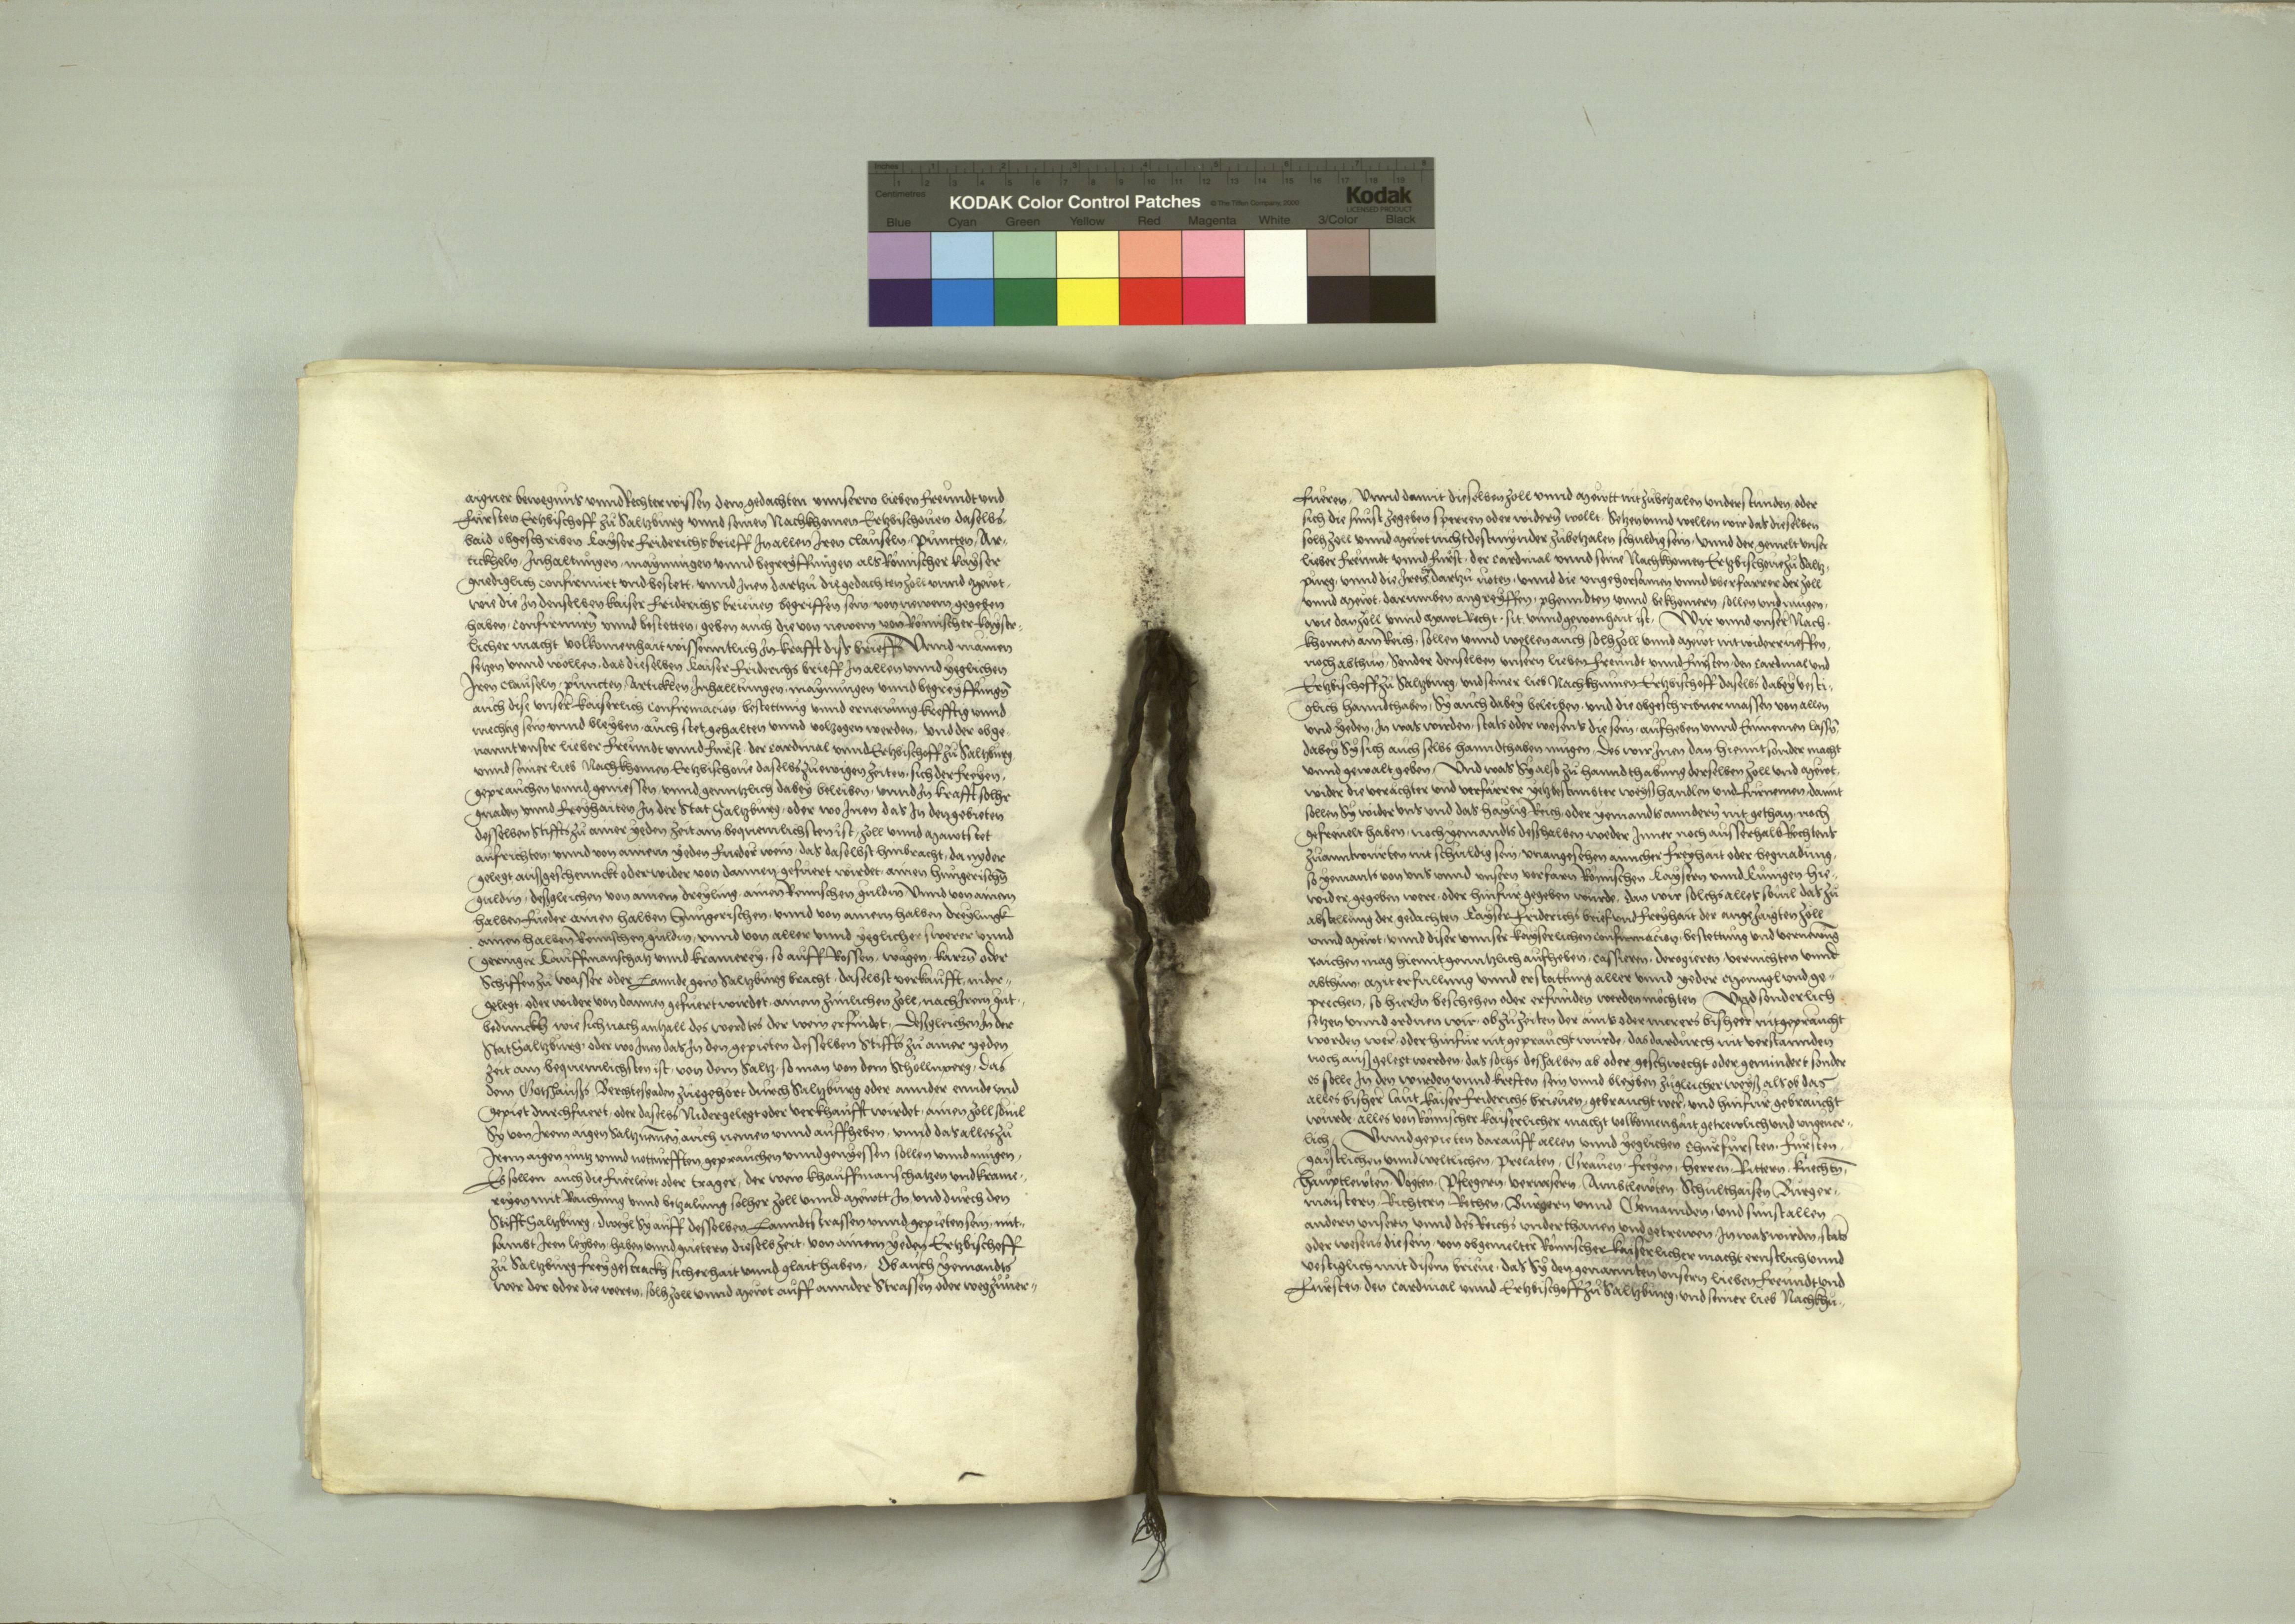 Inches 1 2 3 4 5 6 7 8
Centimetres 1 2 3 4 5 6 7 8 9 10 11 12 13 14 15 16 17 18 19
KODAK Color Control Patches © The Tiffen Company, 2000 Kodak
LICENSED PRODUCT
Blue Cyan Green Yellow Red Magenta White 3/Color Black
aigner bewegnus vnnd Rechter wissen dem gedachten vnnserm lieben freundt vnd
Fursten Ertzbischoff zu Saltzburg vnnd seinen Nachkhomen Ertzbischouen daselbs,
baid obgeschriben Kayser Friderichs brieff In allen Iren Clauseln, Puncten, Ar-
tickheln, Inhaltungen, maynungen vnnd begreyffungen als Römischer Kayser
gnediglich Confirmirt vnd bestett, vnnd Inen dartzu die gedachten Zoll vnnd Mawt,
wie die In denselben Kaiser Friderichs brieuen begriffen sein, von newem gegeben
haben, Confirmirn vnnd bestetten, geben auch die von newem von Römischer Kayser-
licher macht volkomenhait wissenntlich In krafft diss brieffs Vnnd mainen
setzen vnnd wollen, das dieselben Kaiser Friderichs brieff In allen vnnd yeglichen
Iren Clauseln, puncten, Articklen Inhalltungen, maynungen vnnd begreyffungen
auch dise vnser Kaiserlich Confirmacion, bestettung vnnd ernewung krefftig vnnd
mechtig sein vnnd bleyben, auch stet gehalten vnnd volzogen werden, vnd der obge-
nannt vnser lieber Freundt vnnd Furst, der Cardinal vnnd Ertzbischoff zu Saltzburg
vnnd seiner lieb Nachkhomen Ertzbischoue daselbs zu ewigen zeiten, sich der freyen,
geprauchen vnnd geniessen, vnnd genntzlich dabey beleiben, vnnd In krafft solher
gnaden vnnd Freyhaiten In der Stat Saltzburg, oder wo Inen das In den gebieten
desselben Stiffts zu ainer yeden Zeit am bequemlichsten ist, Zoll vnnd Mawtstet
aufrichten, vnnd von ainem yeden Fueder wein, das daselbst hinbracht, da nyder
gelegt aussgeschennckt oder wider von dannen gefuert wirdet, ainen hungerischen
guldin, dessgleichen von ainem dreyling, ainen Reinischen guldin Vnnd von ainem
halben Fueder ainen halben Hungerischen, vnnd von ainem halben dreylingk
ainen halben Reinischen guldin, vnnd von aller vnnd yeglicher swerer vnnd
geringer Kauffmanschatz vnnd kramerey, so auff Rossen, wägen, karren oder
Schiffen zu wasser oder Lannde gein Saltzburg bracht, daselbst verkaufft, nider-
gelegt, oder wider von dannen gefuert wirdet, ainem zimlichen Zoll, nach Irem gut-
beduncken wie sich nach antzall des werdtes der wein erfindet, Dessgleichen In der
Stat Saltzburg, oder wo Inen das In den gepieten desselben Stiffts zu ainer yeden
Zeit am bequemlichsten ist, von dem Saltz, so man von dem Schellnperg, das
dem Gotshauss Berchtesgaden zuegehort durch Saltzburg oder annder ennde vnd
gepiet durchfuert, oder daselbs Nidergelegt oder verkhaufft wirdet, ainen Zoll souil
Sy von Irem aigen Saltz nemen, auch nemen vnnd auffheben, vnnd das alles zu
Irem aigen nutz vnnd noturfften geprauchen vnnd geniessen sollen vnnd mugen,
Es sollen auch die Fuerlewt oder trager, der wein khauffmanschatzen vnd krame-
reyen mit Raichung vnnd betzalung solher Zoll vnnd Mawtt In vnd durch den
Stifft Saltzburg, dweyl Sy auff desselben Lanndtstrassen vnnd gepieten sein, mit-
sambt Iren leyben, haben vnnd guetern dieselb Zeit, von ainem yeden Ertzbischoff
zu Saltzburg frey gestracks sicherhait vnnd glait haben, Ob auch yemandts
wer der oder die weren, solh Zoll vnnd Mawt auff annder Strassen oder weg zuuer-
Fueren, Vnnd damit dieselben Zoll vnnd Mawtt nit zubetzalen vnderstunden, oder
sich die sunst zegeben sperren oder widern wollt, Setzen vnnd wellen wir das dieselben
solh Zoll vnnd Mawt nichtdestmynder zubetzalen schuldig sein, Vnnd der gemelt vnser
lieber Freundt vnnd Furst, der Cardinal vnnd seine Nachkhomen Ertzbischoue zu Saltz-
purg, vnnd die Iren dartzu noten, vnnd die vngehorsamen vnnd vberfarrer der Zoll
vnnd Mawt, darumben angreyffen, phenndten vnnd bekhomern, sollen vnd mugen,
wie dan Zoll vnnd Mawt Recht, sit, vnnd gewonhait ist, Wir vnnd vnser Nach-
khomen am Reich, sollen vnnd wellen auch solh Zoll vnnd Mawt nit widerrueffen,
noch abthun, Sonder denselben vnsern lieben Freundt vnnd Fursten, den Cardinal vnd
Ertzbischoff zu Saltzburg, vnd seiner lieb Nachkhumen Ertzbischoff daselbs dabey vesti-
glich hanndthaben, Sy auch dabey beleiben, vnd die obgeschribner massen von allen
vnd yeden, In was wirden, stats oder wesens die sein, aufheben vnnd Einnemen lassen
dabey Sy sich auch selbs hanndthaben mugen, Des wir Inen dan hiemit sonder macht
vnnd gewalt geben, Vnd was Sy also zu hanndthabung derselben Zoll vnd Mawt,
wider die verachter vnd verfurrer yetzbestimbter weyss handlen vnd furnemen, damit
sollen Sy wider vns vnd das haylig Reich, oder yemandts anndern nit gethan, noch
gefreuelt haben, noch yemandts desshalben weder Inner noch ausserhalb Rechtens
zu anntwurten nit schuldig sein, vnangesehen ainicher Freyhait oder begnadung,
so yemants von vns vnnd vnsern vorfarn Römischen Kaysern vnnd Kunigen hie-
wider gegeben were, oder hinfur gegeben wurde, dan wir solchs alles souil das zu
abstellung der gedachten Kayser Friderichs brief vnd Freyhait der angezaigten Zoll
vnnd Mawt, vnnd diser vnnser Kayserlichen Confirmacion, bestettung vnd vernewung
raichen mag hiemit genntzlich aufheben, Cassieren, derogieren, vernichten vnnd
abthun, Mit erfullung vnnd erstattung aller vnnd yeder Menngl vnd ge-
prechen, so hierin beschehen oder erfunden werden möchten Vnd sonderlich
setzen vnnd ordnen wir, ob zu zeiten der ains oder merers bissheer nit gepraucht
worden wer, oder hinfur nit gepraucht wurde, das dardurch nit verstannden
noch aussgelegt werden, das solhs desshalben ab oder geschwecht oder gemindert sonder
es solle In den wirden vnnd kreften sein vnnd bleyben zugleicher weyss als ob das
alles bissher laut Kaiser Friderichs brieuen, gebraucht wer, vnd hinfur gebraucht
wurde, alles von Römischer Kaiserlicher macht volkomenhait getrewlich vnd vngeuer-
lich, Vnnd gepieten darauff allen vnnd yeglichen Churfursten, Fursten,
gaistlichen vnnd weltlichen, Prelaten, Grauen, Freyen, Herren, Rittern, Knechten,
Hauptlewten, Vogten, Pflegern, verwesern, Ambtlewten, Schulthaisen, Burger-
maistern, Richtern, Rethen, Burgern vnnd Gemainden, vnd sunst allen
andern vnsern vnnd des Reichs vnderthanen vnd getrewen, In was wirden, stats
oder wesens die sein, von obgemelter Römischer Kaiserlicher macht ernstlich vnnd
vestiglich mit disem brieue, das Sy den genannten vnsern lieben Freundt vnd
Fursten, den Cardinal vnnd Ertzbischoff zu Saltzburg, vnd seiner lieb Nachkhu-